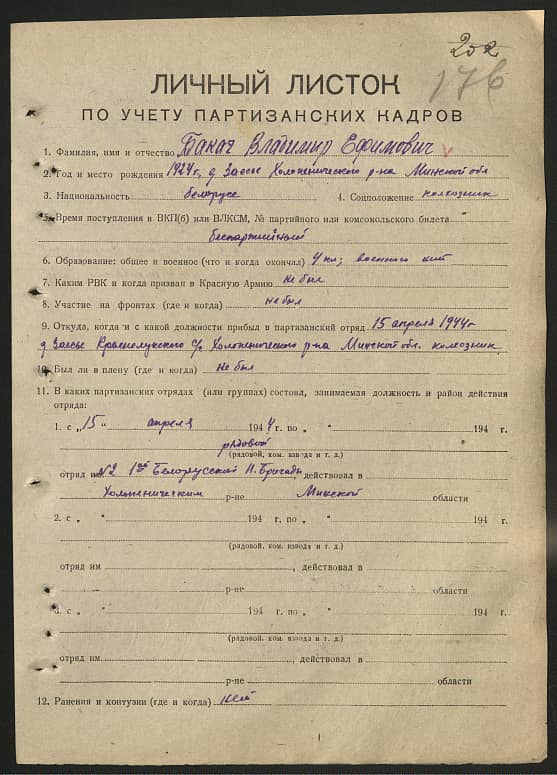 202
176
ЛИЧНЫЙ ЛИСТОК
ПО УЧЕТУ ПАРТИЗАНСКИХ КАДРОВ
1. Фамилия, имя и отчество Бакач Владимир Ефимович
2. Год и место рождения 1924г, д Заесье Холопеничского р-на Минской обл
3. Национальность белорусс 4. Соцположение колхозник
5. Время поступления в ВКП(б) или ВЛКСМ, № партийного или комсомольского билета
беспартийный
6. Образование: общее и военное (что и когда окончил) 4 кл; военного нет
7. Каким РВК и когда призван в Красную Армию не был
8. Участие на фронтах (где и когда) не был
9. Откуда, когда и с какой должности прибыл в партизанский отряд 15 апреля 1944г
д Заесье Краснолукского с/с Холопеничского р-на Минской обл. колхозник
10. Был ли в плену (где и когда) не был
11. В каких партизанских отрядах (или группах) состоял, занимаемая должность и район действия
отряда:
1. с „15" апреля 1944 г. по „ " 194 г.
рядовой
(рядовой, ком. взвода и т. д.)
отряд им №2 1ой Белорусский П. Бригады действовал в
Холопеническим р-не Минской области
2. с „ " 194 г. по „ " 194 г.
(рядовой, ком. взвода и т. д.)
отряд им , действовал в
р-не области
3. с „ " 194 г. по „ " 194 г.
(рядовой, ком. взвода и т. д.)
отряд им. , действовал в
р-не области
12. Ранения и контузии (где и когда) нет
1